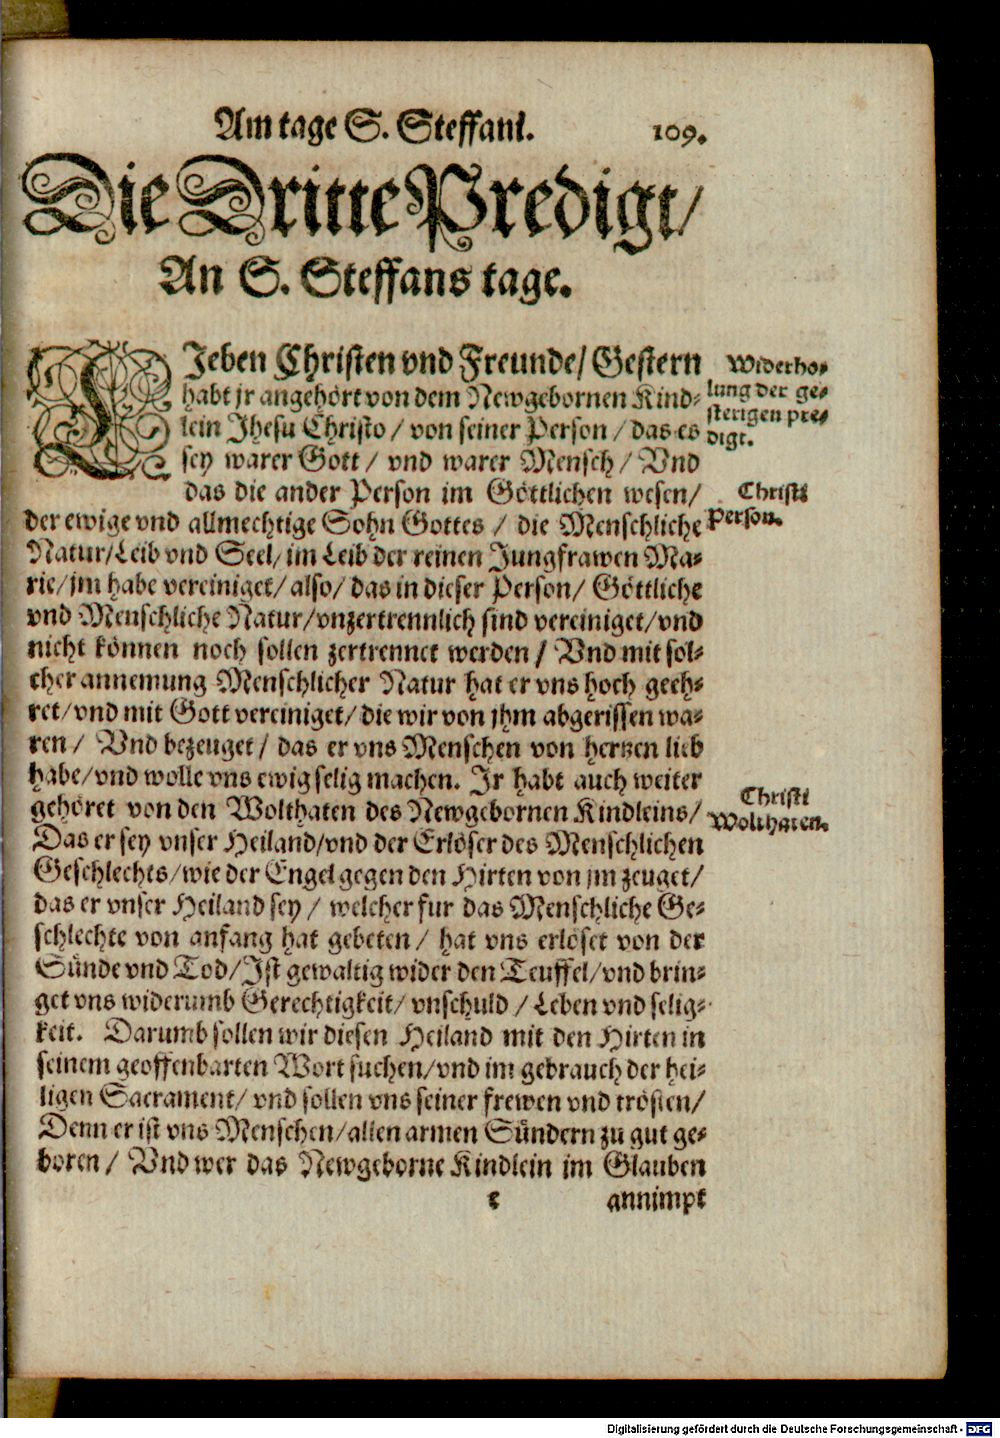 Am tage S. Steffani. 109.
Die Dritte Predigt/
An S. Steffans tage.
LJeben Christen vnd Freunde/ Gestern
habt jr angehört von dem Newgebornen Kind-
lein Jhesu Christo / von seiner Person / das es
sey warer Gott / vnd warer Mensch / Vnd
das die ander Person im Göttlichen wesen/
der ewige vnd allmechtige Sohn Gottes / die Menschliche
Natur/Leib vnd Seel/ im Leib der reinen Jungfrawen Ma-
rie/ jm habe vereiniget/ also/ das in dieser Person/ Göttliche
vnd Menschliche Natur/vnzertrennlich sind vereiniget/vnd
nicht können noch sollen zertrennet werden / Vnd mit sol-
cher annemung Menschlicher Natur hat er vns hoch geeh-
ret/vnd mit Gott vereiniget/ die wir von jhm abgerissen wa-
ren / Vnd bezeuget / das er vns Menschen von hertzen lieb
habe/vnd wolle vns ewig selig machen. Jr habt auch weiter
gehöret von den Wolthaten des Newgebornen Kindleins/
Das er sey vnser Heiland/vnd der Erlöser des Menschlichen
Geschlechts/wie der Engel gegen den Hirten von jm zeuget/
das er vnser Heiland sey / welcher fur das Menschliche Ge-
schlechte von anfang hat gebeten / hat vns erlöset von der
Sünde vnd Tod/Jst gewaltig wider den Teuffel/vnd brin-
get vns widerumb Gerechtigkeit/ vnschuld / Leben vnd selig-
keit. Darumb sollen wir diesen Heiland mit den Hirten in
seinem geoffenbarten Wort suchen/vnd im gebrauch der hei-
ligen Sacrament/ vnd sollen vns seiner frewen vnd trösten/
Denn er ist vns Menschen/allen armen Sündern zu gut ge-
boren / Vnd wer das Newgeborne Kindlein im Glauben
e annimpt
Widerho-
lung der ge-
sterigen pre-
digt.
Christi
Person.
Christi
Wolthaten.
Digitalisierung gefördert durch die Deutsche Forschungsgemeinschaft - DFG